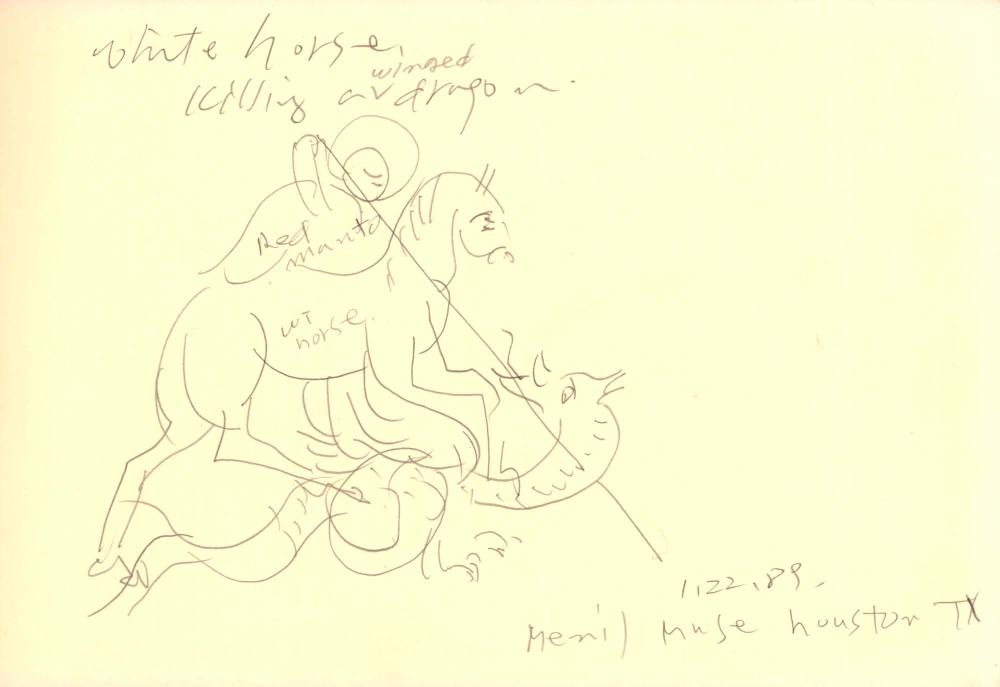 white horse
winged
killing a dragon.
Red
manto
WT
horse.
1.22.89.
Menil Muse houston TX